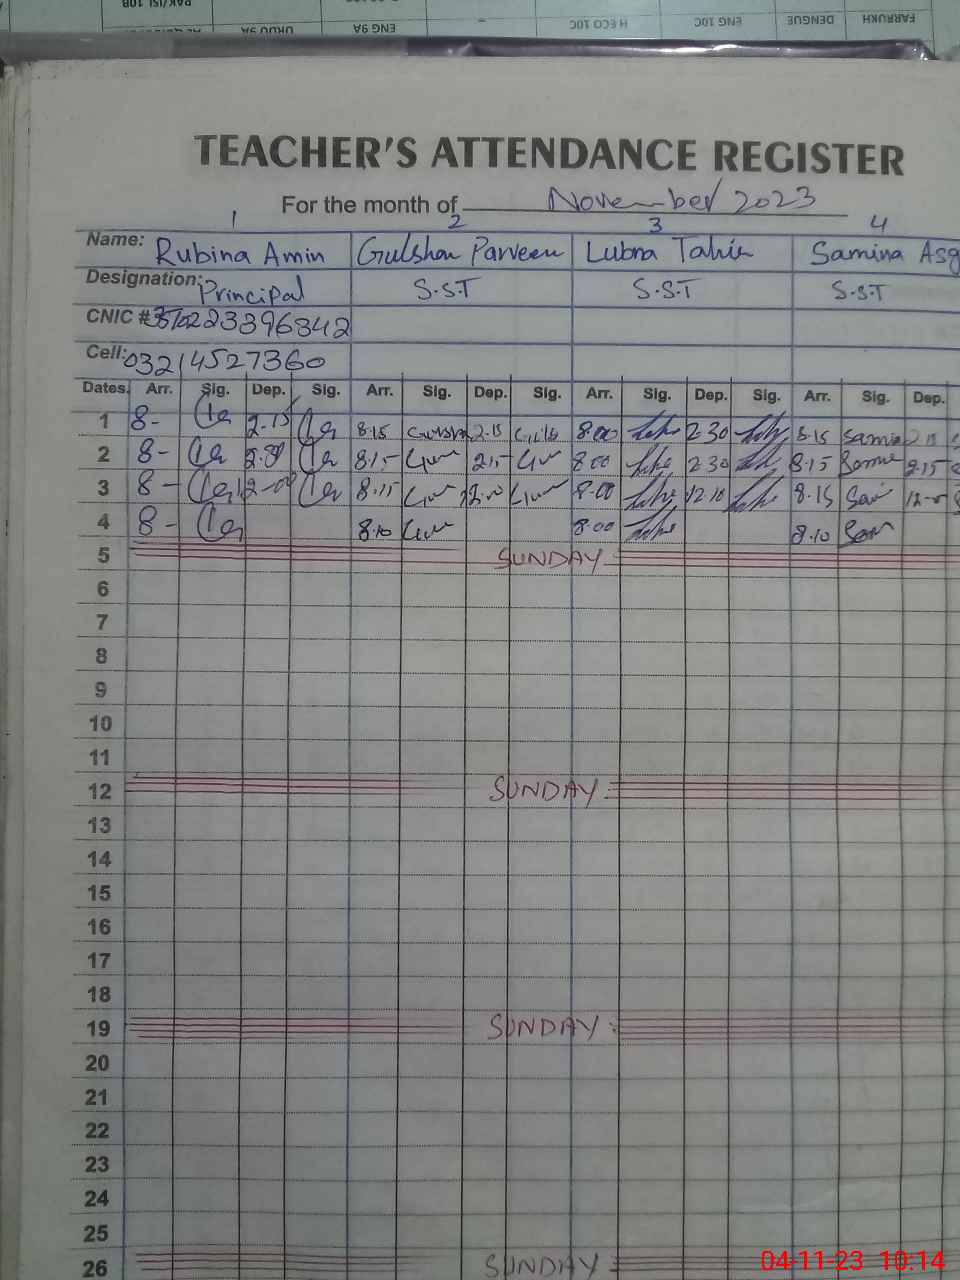 PAK/ISL 10B
URDU 9A
ENG 9A
H ECO 10C
ENG 10C
DENGUE
FARRUKH
TEACHER'S ATTENDANCE REGISTER
For the month of November 2023
1 2 3 4
Name: Rubina Amin Gulshan Parveen Lubna Tahir Samina Asg
Designation: Principal S.S.T S.S.T S.S.T
CNIC #
Cell: 03214527360
Dates. Arr. Sig. Dep. Sig. Arr. Sig. Dep. Sig. Arr. Sig. Dep. Sig. Arr. Sig. Dep.
1 8- 2-15 8.15 Gulshan 2.15 8.00 2.30 8.15 Samina 2.15
2 8- 2.30 8.15 2.15 8.00 2.30 8.15 2.15
3 8- 12-00 8.15 12.00 8.00 12.10 8.15 12-0
4 8- 8.10 8.00 8.10
5 SUNDAY
6
7
8
9
10
11
12 SUNDAY
13
14
15
16
17
18
19 SUNDAY
20
21
22
23
24
25
26 SUNDAY
04-11-23 10:14